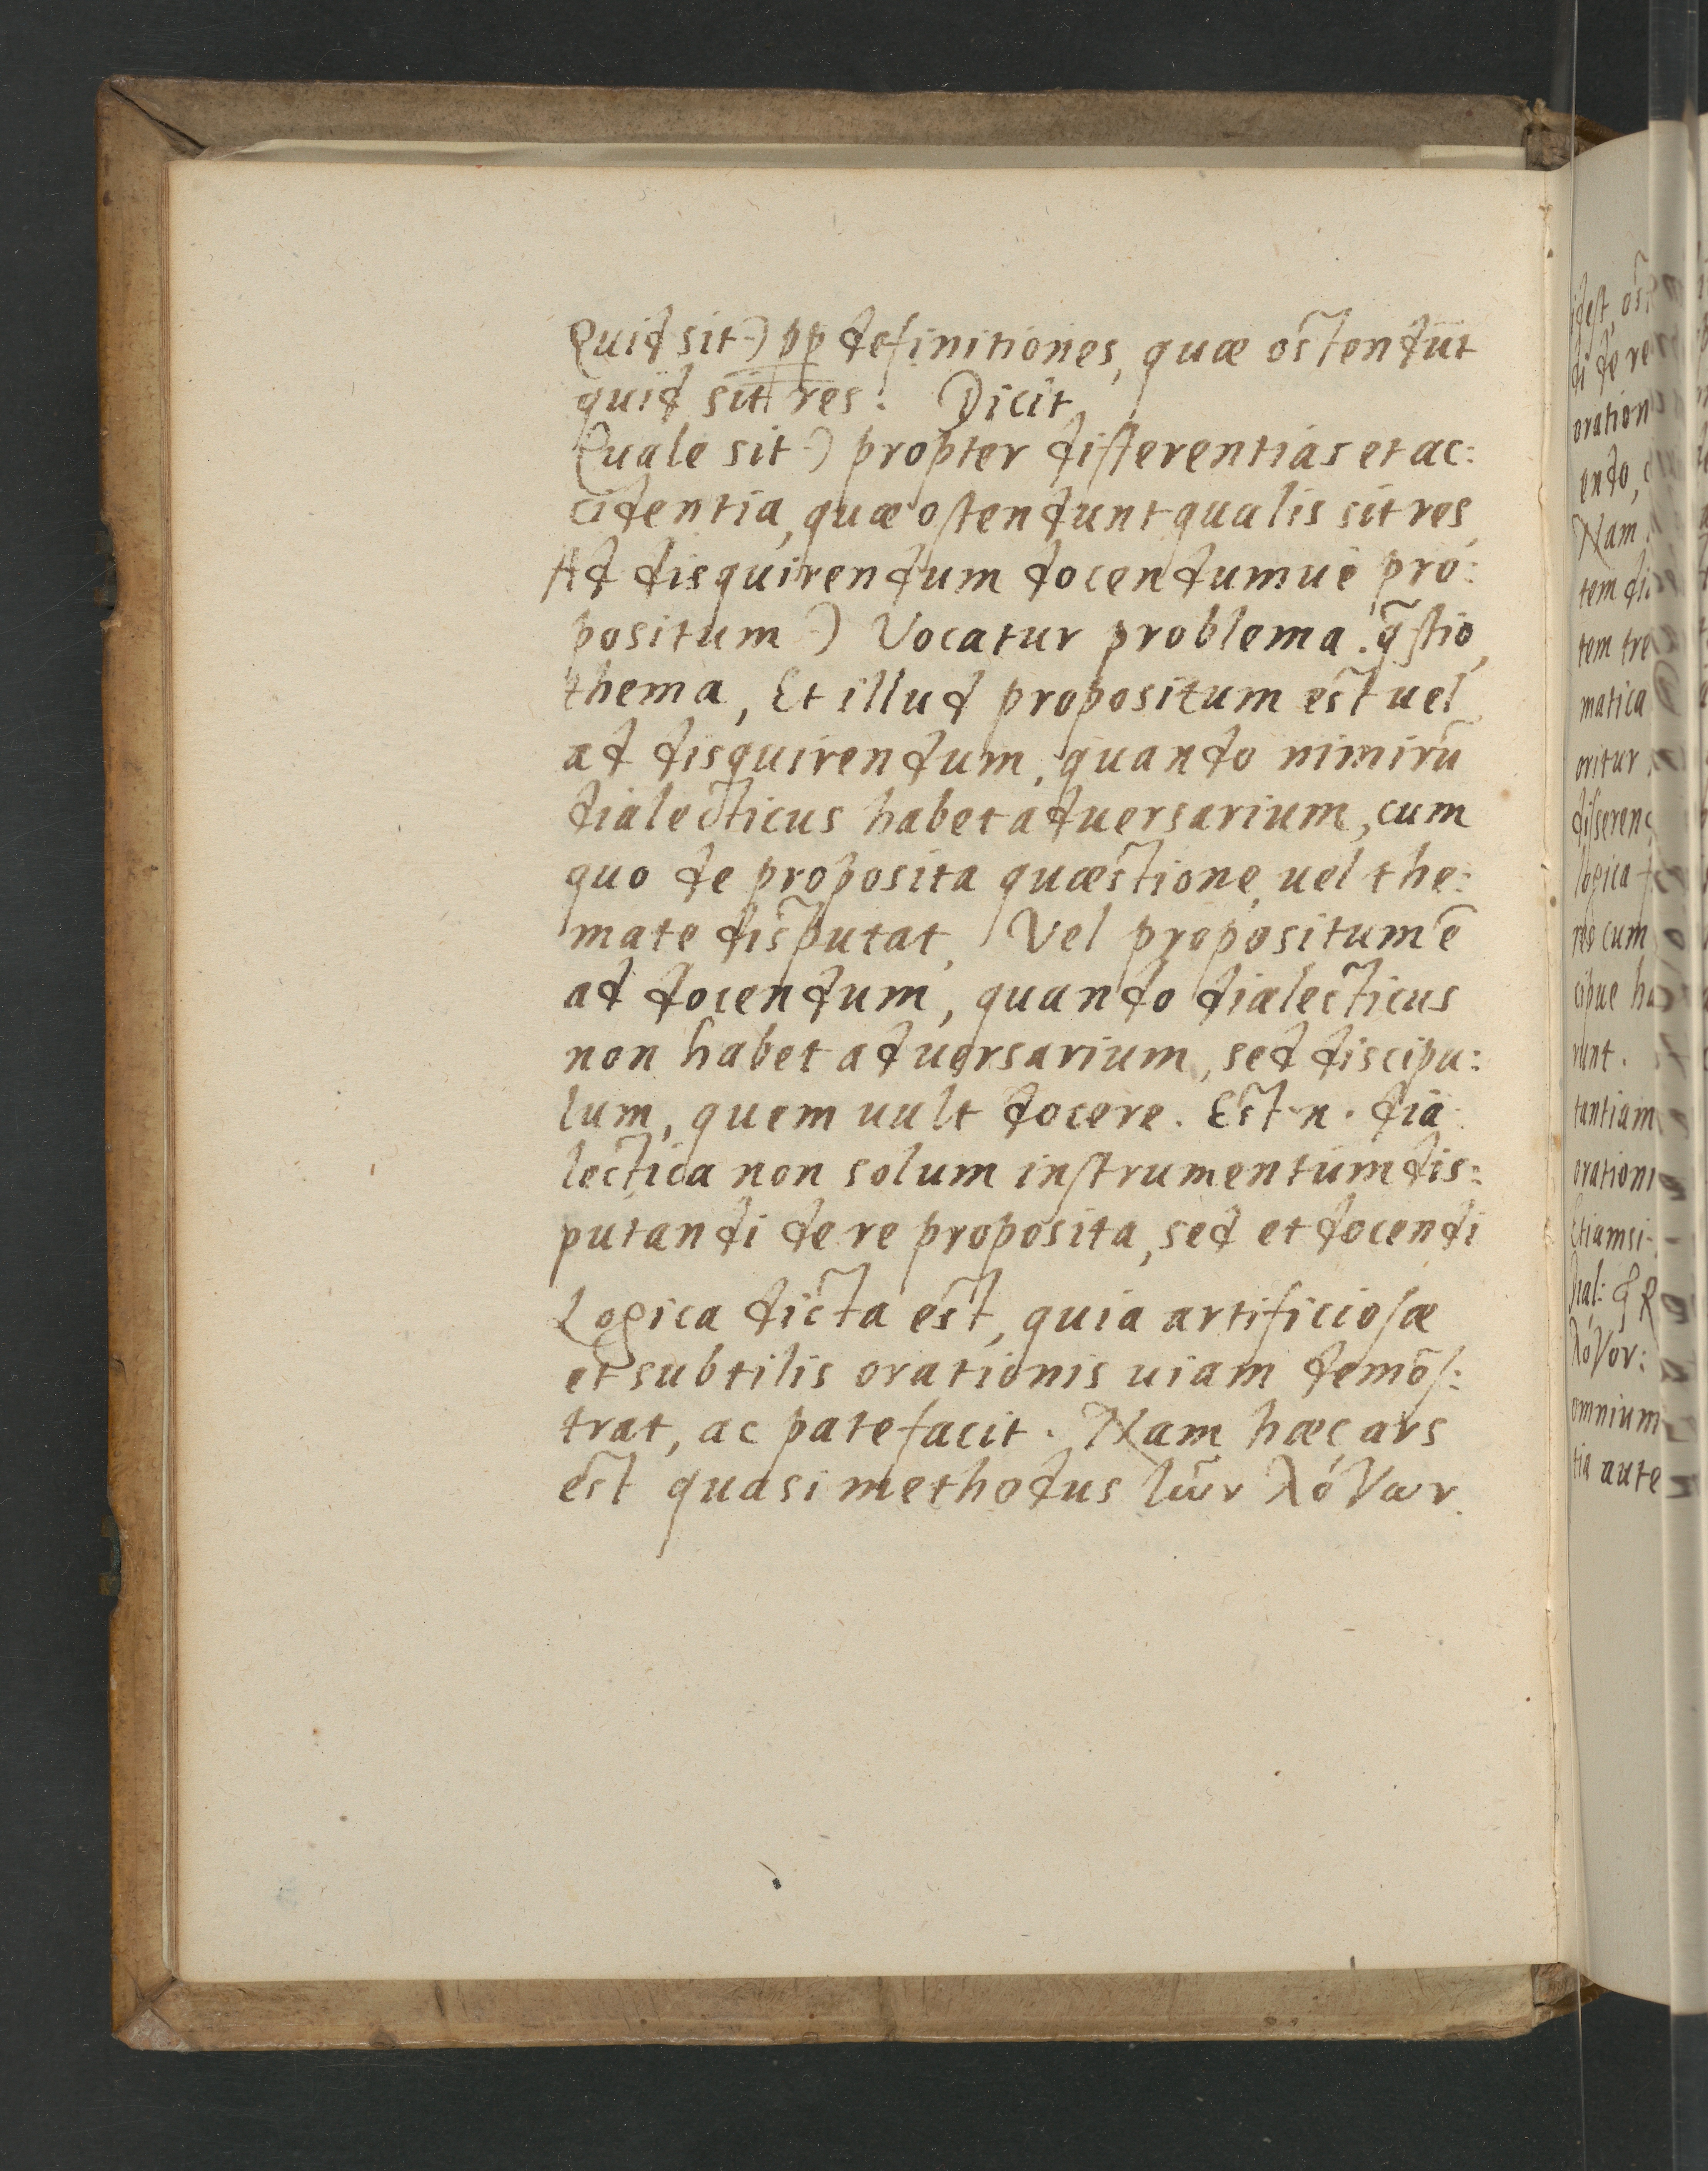 Quid sit-) pp definitiones, quæ ostendūt
quid sit res. Dicit
Quale sit-) propter differentias et ac:
cidentia, quæ ostendunt qualis sit res,
Ad disquirendum docendumuè pro:
positum-) Vocatur problema. q̄stio,
thema, Et illud propositum est uel
ad disquirendum, quando nimirū
dialecticus habet aduersarium, cum
quo de proposita quæstione, uel the:
mate disputat, Vel propositum ē
ad docendum, quando dialecticus
non habet aduersarium, sed discipu:
lum, quem uult docere. Est n. dia
lectica non solum instrumentum dis:
putandi de re proposita, sed et docendi
Logica dicta est, quia artificiosæ
et subtilis orationis uiam demōs:
trat, ac patefacit. Nam hæc ars
est quasi methodus τῶν λόγων.
idest, ost
di de re
oration
endo,
Nam
tem di
tem tre
matica
oritur
disseren
logica
reo cum
cipue ha
runt.
tantiam
orationi
Etiamsi
λόγον:
omnium
tia aute